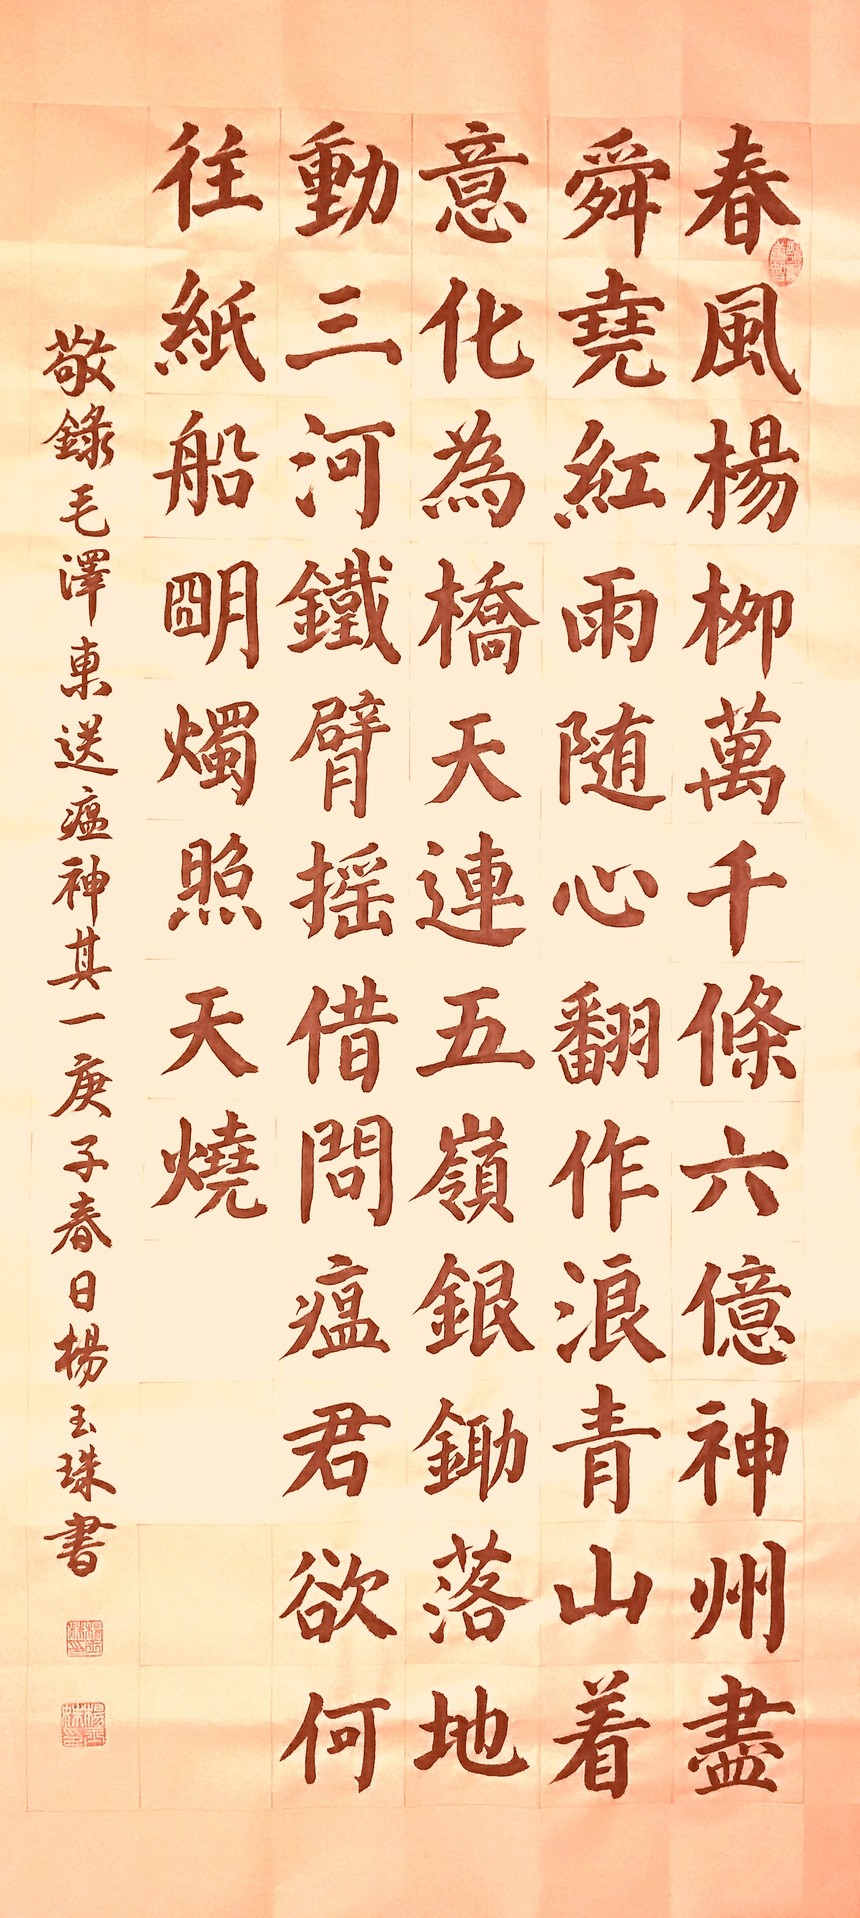 春風楊栁萬千條六億神州盡
舜堯紅雨随心翻作浪青山着
意化為橋天連五嶺銀鋤落地
動三河鐵臂摇借問瘟君欲何
往紙船明燭照天燒
敬錄毛澤東送瘟神其一庚子春日楊玉珠書